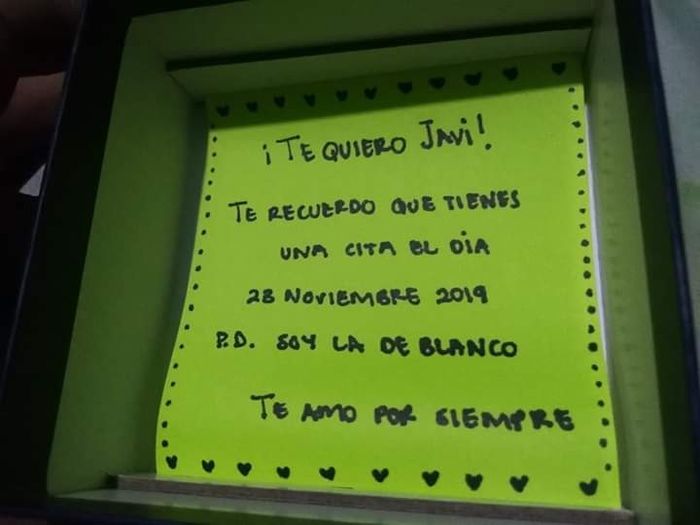 ¡TE QUIERO JAVI!
TE RECUERDO QUE TIENES
UNA CITA EL DÍA
28 NOVIEMBRE 2019
P.D. SOY LA DE BLANCO
TE AMO POR SIEMPRE